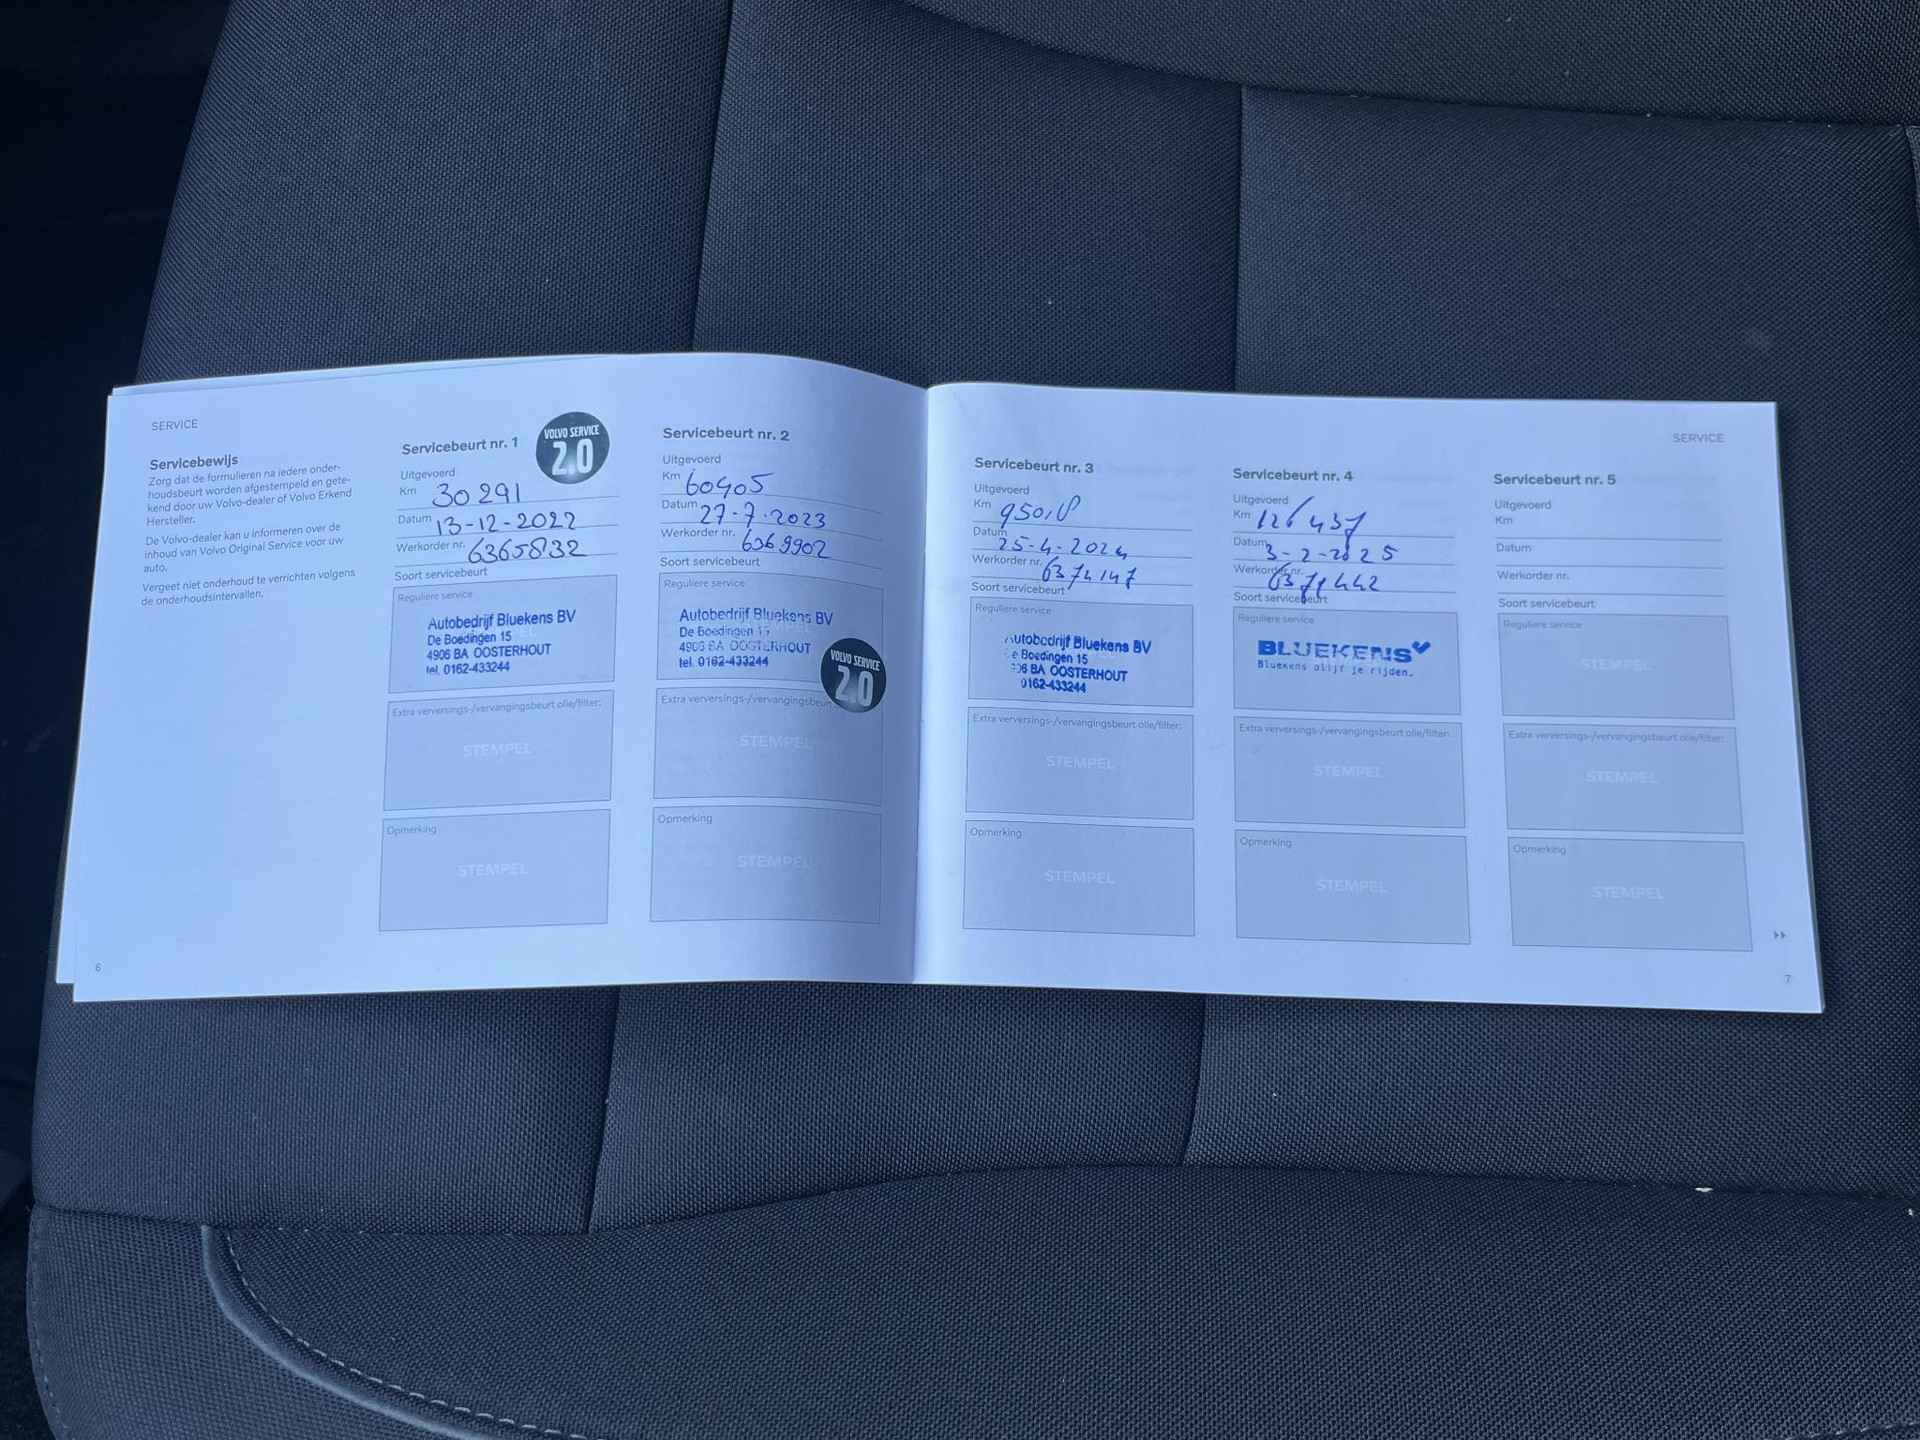 SERVICE
Servicebewijs
Zorg dat de formulieren na iedere onder-
houdsbeurt worden afgestempeld en gete-
kend door uw Volvo-dealer of Volvo Erkend
Hersteller.
De Volvo-dealer kan u informeren over de
inhoud van Volvo Original Service voor uw
auto.
Vergeet niet onderhoud te verrichten volgens
de onderhoudsintervallen.
6
Servicebeurt nr. 1
VOLVO SERVICE
2.0
Uitgevoerd
Km 30291
Datum 13-12-2022
Werkorder nr. 6365832
Soort servicebeurt
Reguliere service
Autobedrijf Bluekens BV
De Boedingen 15
4906 BA OOSTERHOUT
tel. 0162-433244
Extra verversings-/vervangingsbeurt olie/filter:
STEMPEL
Opmerking
STEMPEL
Servicebeurt nr. 2
Uitgevoerd
Km 60405
Datum 27-7-2023
Werkorder nr. 6369902
Soort servicebeurt
Reguliere service
Autobedrijf Bluekens BV
De Boedingen 15
4906 BA OOSTERHOUT
tel. 0162-433244
VOLVO SERVICE
2.0
Extra verversings-/vervangingsbeurt
STEMPEL
Opmerking
STEMPEL
SERVICE
Servicebeurt nr. 3
Uitgevoerd
Km
Datum 25-4-2024
Werkorder nr. 6374147
Soort servicebeurt
Reguliere service
utobedrijf Bluekens BV
e Boedingen 15
06 BA OOSTERHOUT
0162-433244
Extra verversings-/vervangingsbeurt olie/filter:
STEMPEL
Opmerking
STEMPEL
Servicebeurt nr. 4
Uitgevoerd
Km 126437
Datum 3-2-2025
Werkorder nr.
Soort servicebeurt
Reguliere service
BLUEKENS
Bluekens blijf je rijden.
Extra verversings-/vervangingsbeurt olie/filter:
STEMPEL
Opmerking
STEMPEL
Servicebeurt nr. 5
Uitgevoerd
Km
Datum
Werkorder nr.
Soort servicebeurt
Reguliere service
STEMPEL
Extra verversings-/vervangingsbeurt olie/filter:
STEMPEL
Opmerking
STEMPEL
7